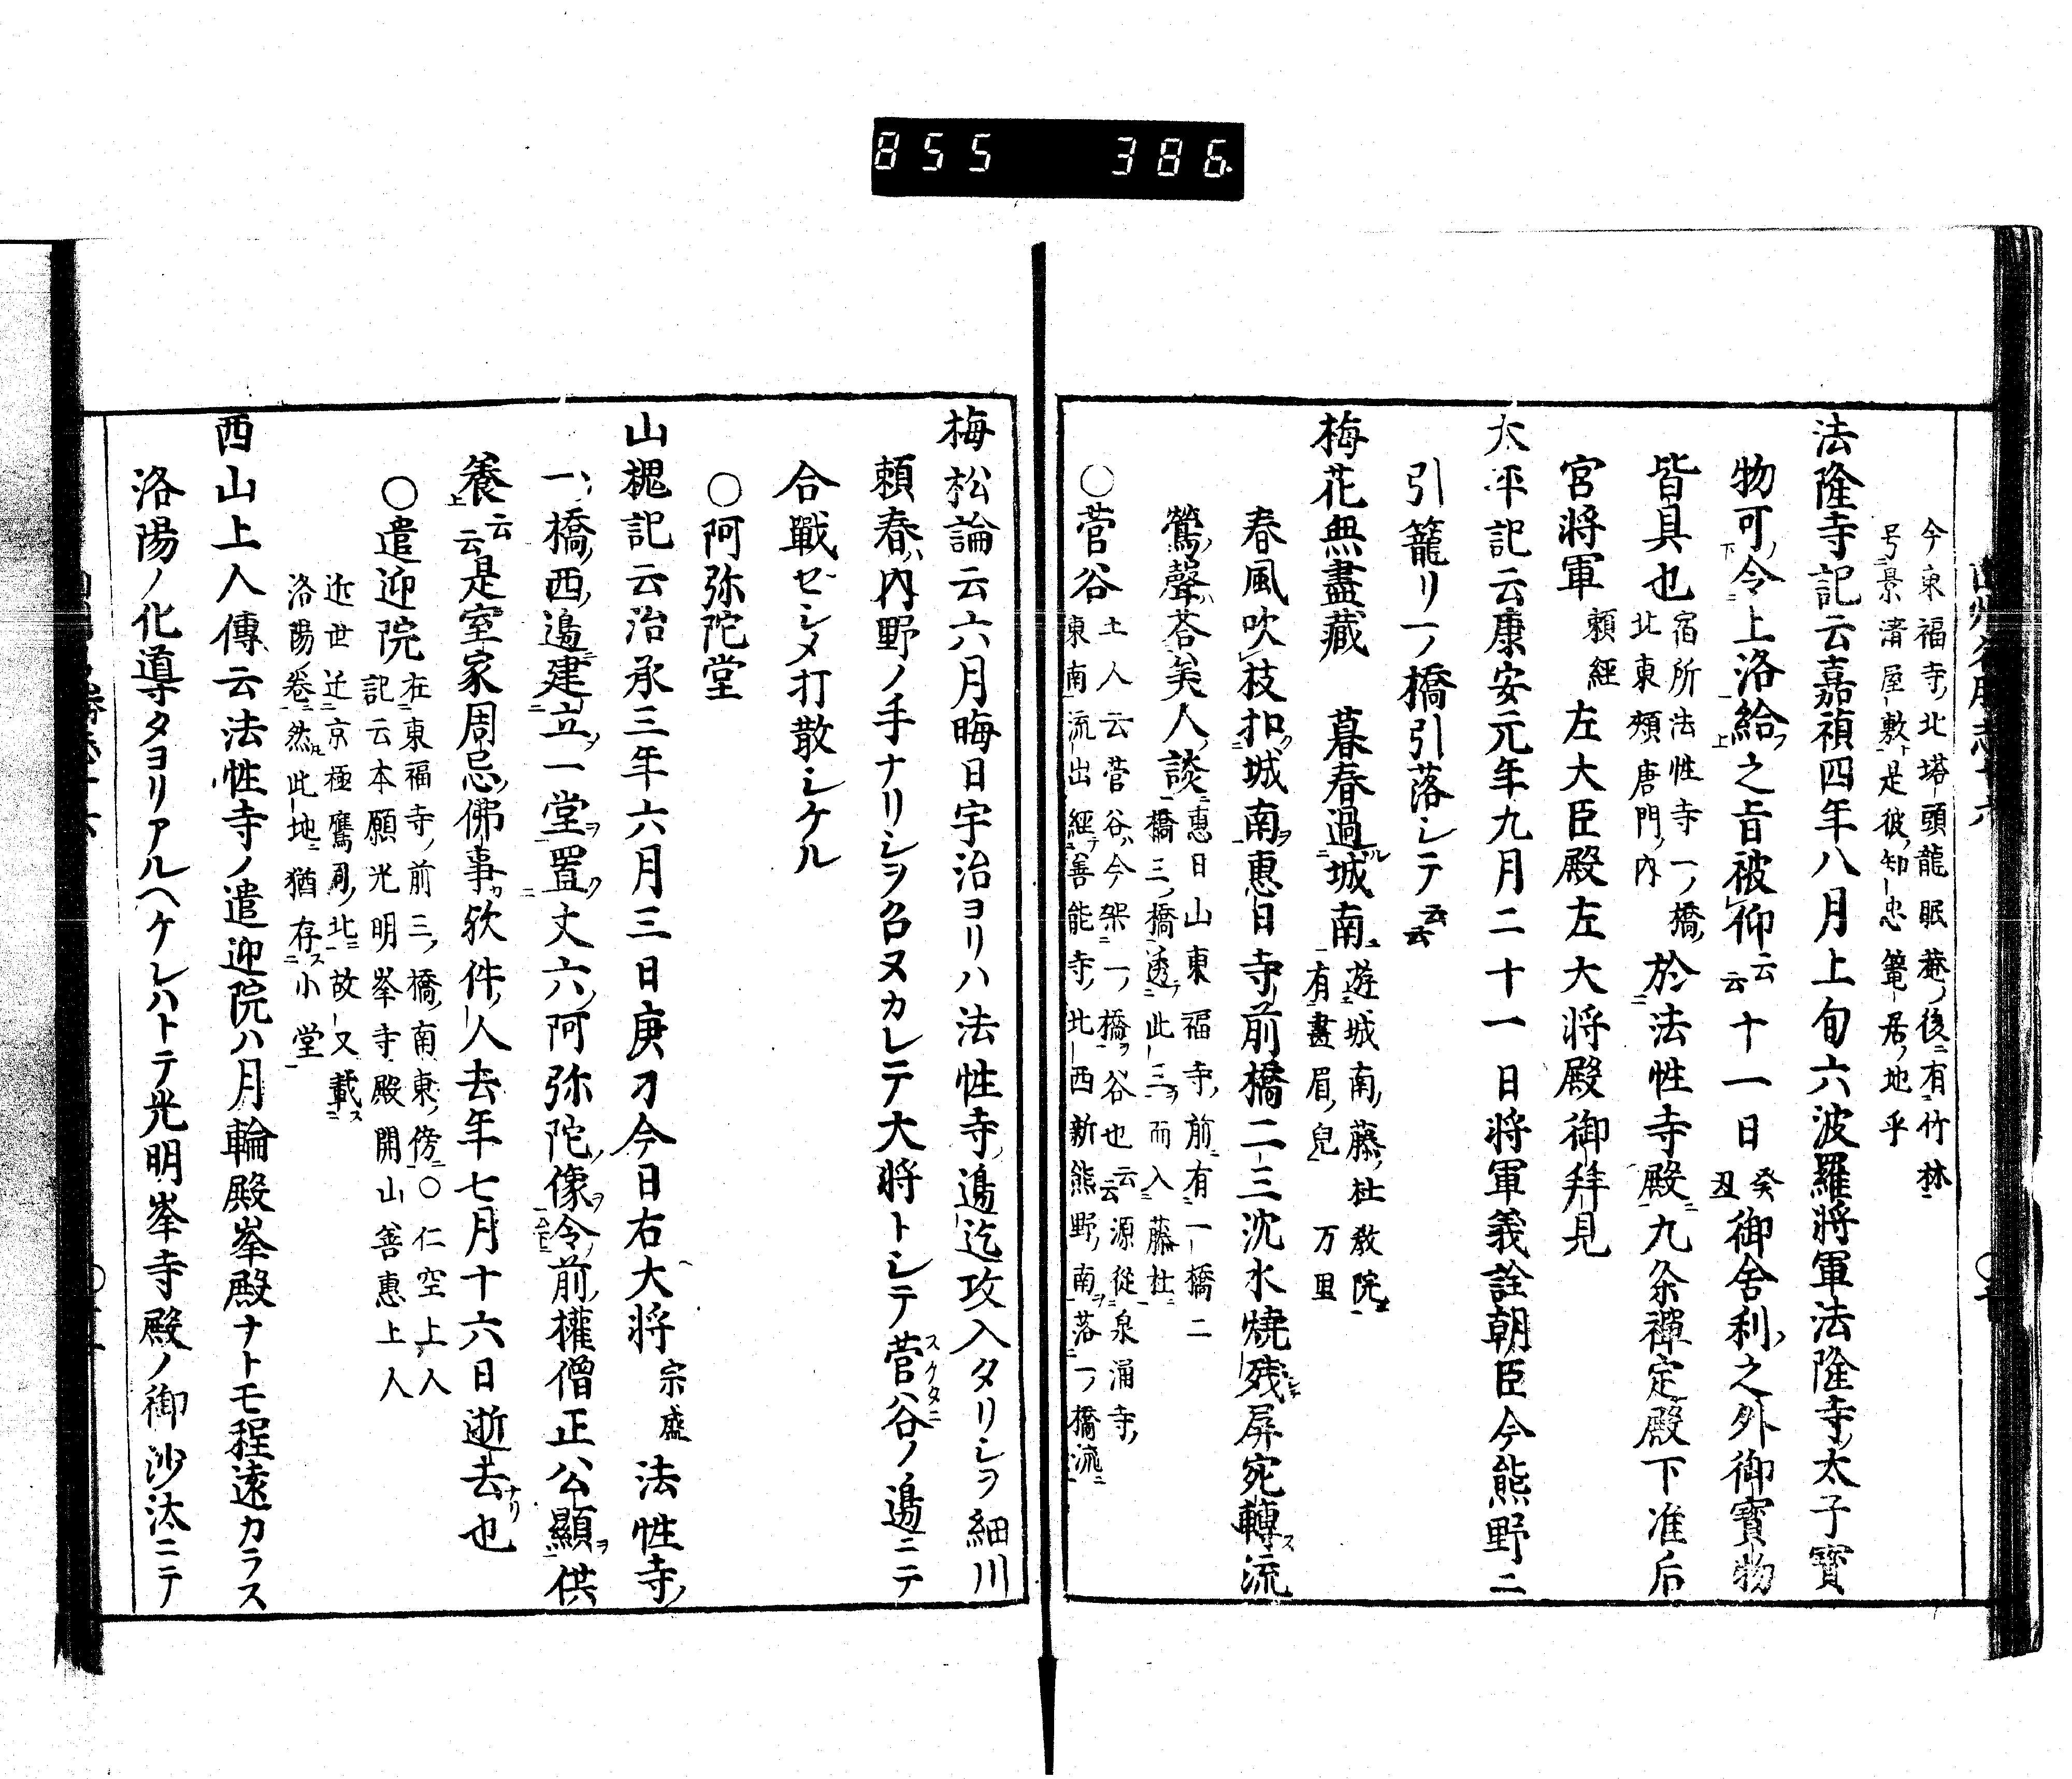 855 386
今東福寺ノ北塔頭龍眠菴ノ後ニ有竹林
号景清屋敷ト是彼ノ知忠篭居ノ地乎
法隆寺記云嘉禎四年八月上旬六波羅將軍法隆寺ノ太子寳
物可令上洛給之旨被仰云云十一日癸丑御舍利ノ之外御寳物
皆具也宿所法性寺一ノ橋ノ
北東頰唐門ノ內於法性寺殿九条禪定殿下准后
宮将軍頼經左大臣殿左大将殿御拜見
太平記云康安元年九月二十一日将軍義詮朝臣今熊野ニ
引籠リ一ノ橋引落シテ云云
梅花無盡藏 暮春過城南遊城南ノ藤杜敎院
有畫眉ノ皃 万里
春風吹枝扣城南惠日寺前橋二三沈水燒殘屏宛轉流
鶯ノ聲ハ荅美人ノ談惠日山東福寺ノ前有一橋二
橋三ノ橋透此三而入藤杜
○菅谷土人云菅谷ハ今架一ノ橋谷也云云源從泉涌寺ノ
東南流出經善能寺ノ北西新熊野ノ南落一ノ橋流
梅松論云六月晦日宇治ヨリハ法性寺ノ邉迄攻入タリシヲ細川
頼春ハ內野ノ手ナリシヲ召ヌカレテ大将トシテ菅谷スケタニノ邉ニテ
合戰セシメ打散シケル
○阿弥陀堂
山槐記云治承三年六月三日庚刁今日右大将宗盛法性寺ノ
一ノ橋ノ西ノ邉建立一堂置丈六ノ阿弥陀ノ像令前ノ權僧正公顯供
養云云是室家周忌ノ佛事歟件ノ人去年七月十六日逝去ナリ也
○遣迎院在東福寺ノ前三ノ橋ノ南東ノ傍○仁空上人
記云本願光明峯寺殿開山善惠上人
近世迁京極鷹司ノ北故又載ス
洛陽ノ卷然此地猶存小堂
西山上人傳云法性寺ノ遣迎院ハ月輪殿峯殿ナトモ程遠カラス
洛陽ノ化導タヨリアルヘケレハトテ光明峯寺殿ノ御沙汰ニテ